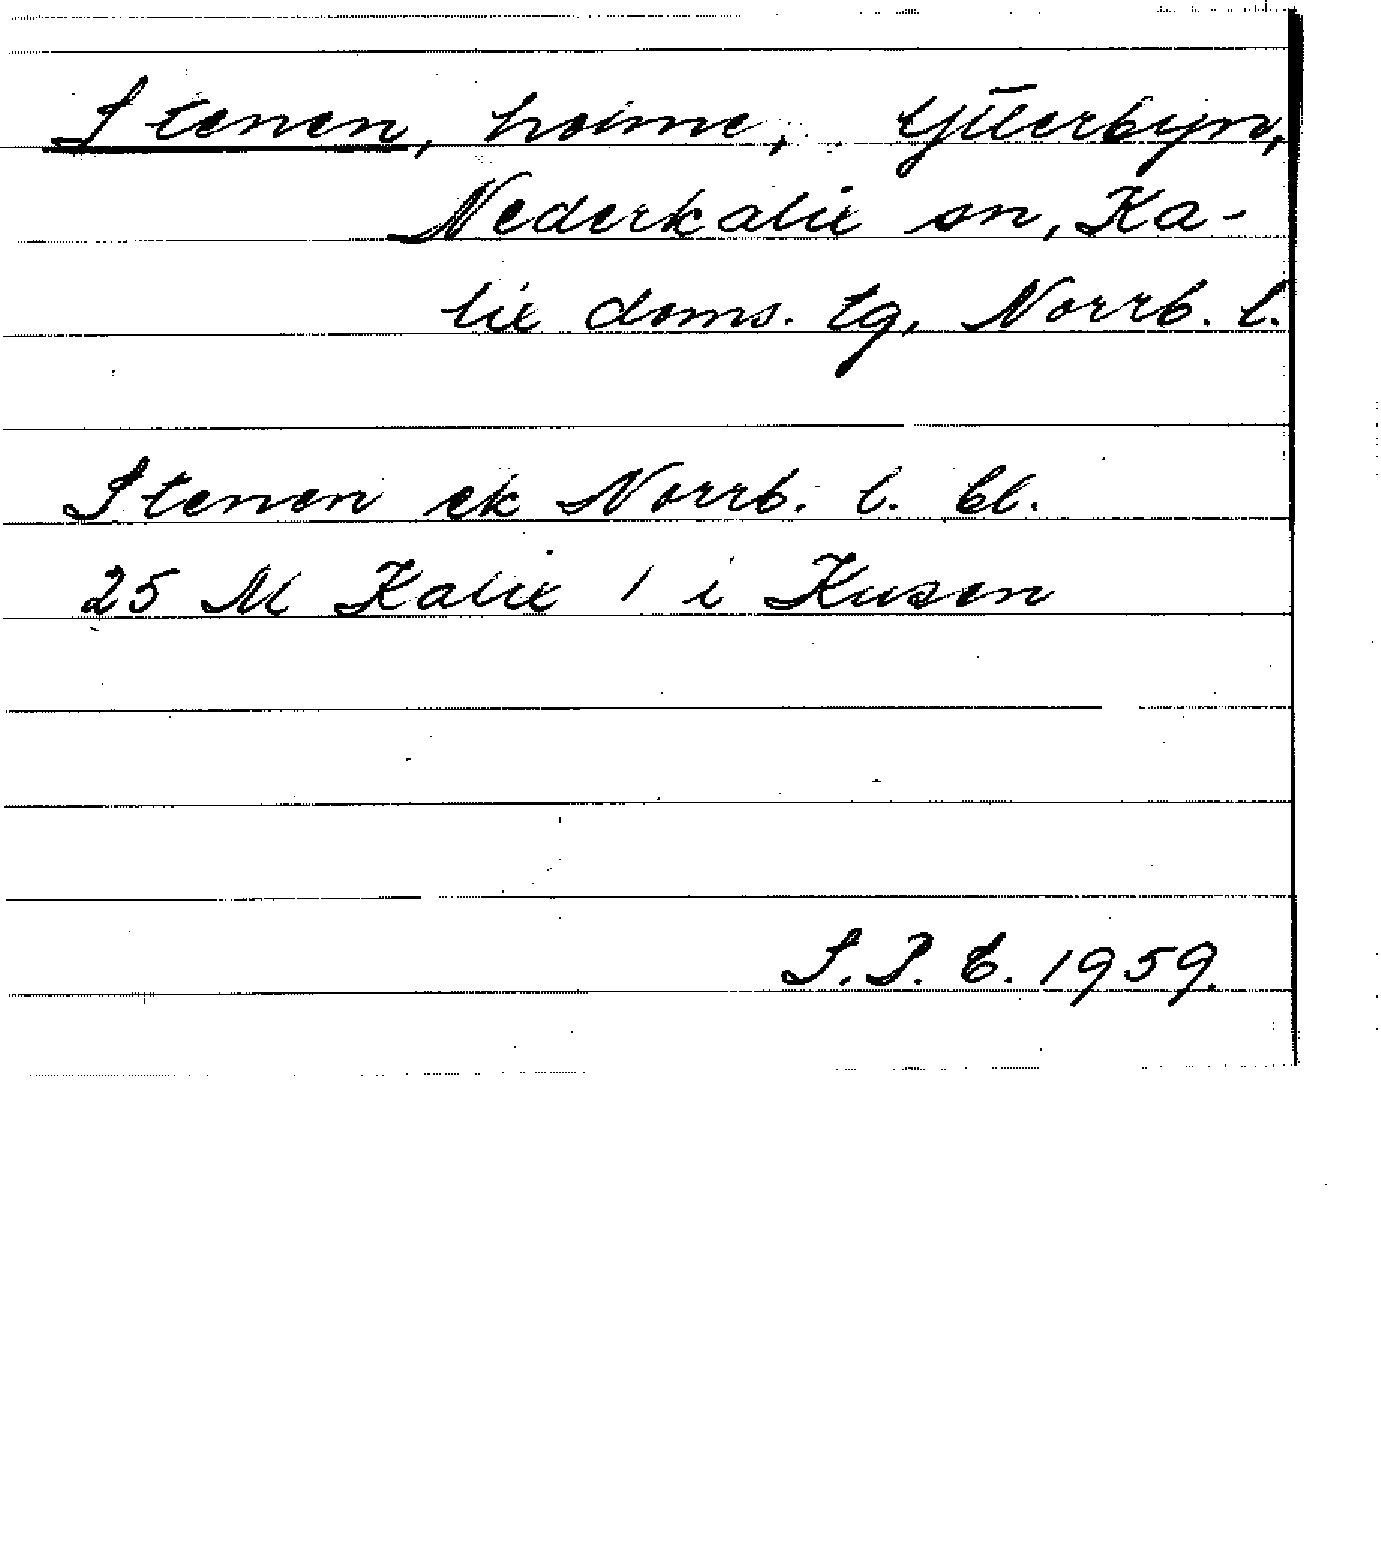 Stenen, holme, Ytterbyn,
Nederkalix sn, Ka-
lix doms. tg, Norrb. l.
Stenen ek Norrb. l. bl.
25 M Kalix 1 i Kusen
S.P.E. 1959.